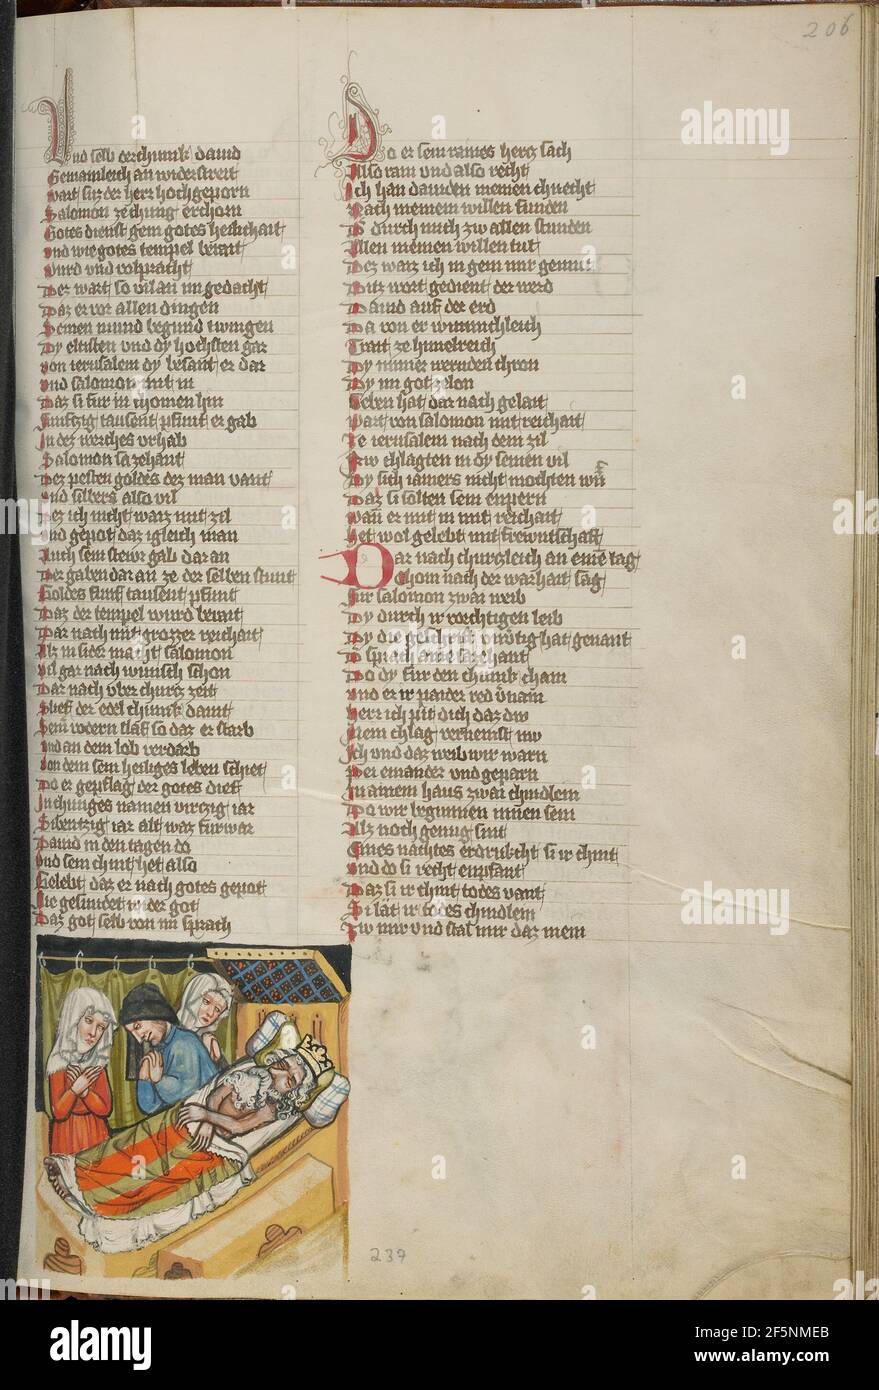 206
Und selb der chunik dauid
Gemainleich an widerstreit
wart suz der herr hochgeporn
Salomon ze chunig erchorn
Gotes dienst gern gotes heilichait
und wie gotes tempel berait
Wurd und volpracht
Der wart so vil an im gedacht
Daz er vor allen dingen
Seinen mund begund twingen
Dy eltisten und dy hochsten gar
von ierusalem dy besant er dar
und salomon mit in
Daz si fur in chomen hin
funftzig tausent pfunt er gab
In dez werches urhab
Salomon sazehant
Dez pesten goldes dez man vant
und silbers also vil
Dez ich nicht waiz mit zil
und gepot daz igleich man
Auch sein stewr gab dar an
Der gaben dar an ze der selben stunt
Goldes funf tausent pfunt
Daz der tempel wurd berait
Dar nach mit grozzer reichait
Alz in sider macht salomon
vil gar nach wunsch schon
Dar nach uber churtz zeit
Slief der edel chunik dauit
Seinen vodern slaf so daz er starb
und an dem lob verdarb
von dem sein heiliges leben schiet
Do er gepflag der gotes diet
In chuniges namen virczig iar
Sibentzig iar alt waz furwar
Dauid in den tagen do
und sein chint het also
Gelebt daz er nach gotes gepot
Nie gesundet wider got
Daz got selb von im sprach
Do er sein raines hertz sach
Also rain und also recht
Ich han dauiden meinen chnecht
Nach meinem willen funden
Der durch mich zw allen stunden
Allen meinen willen tut
Dez waiz ich in gem mir gemut
Ditz wort gedient der werd
Dauid auf der erd
Da von er wunnichleich
Trait ze himelreich
Dy nimer wernden chron
Dy im got zelon
Geben hat dar nach gelait
wart von salomon mit reichait
Ze ierusalem nach dem zil
Nw chlagten in dy seinen vil
Dy sich iamers nicht mochten wern
Daz si solten sein enpern
wann er mit in mit reichait
Het wol gelebt mit frewntschaft
Dar nach churtzleich an einem tag
Chom nach der warhait sag
fur salomon zwai weib
Dy durch ir vorchtigen leib
Dy die geschrift unwirdig hat genant
Do sprach aine sazehant
Do dy fur den chunik cham
und er ir paider red vernam
herr ich pit dich daz dw
Mein chlag vernemst nw
Ich und daz weib wir warn
Pei einander und geparn
In ainem haus zwai chindlein
Do wir begunnen innen sein
Alz noch genug sint
Eines nachtes erdrukcht si ir chint
und do si recht enpfant
Daz si ir chint todes vant
Si lat ir totes chindlein
Zw mir und stal mir daz mein
239
alamy
Image ID: 2F5NMEB
www.alamy.com